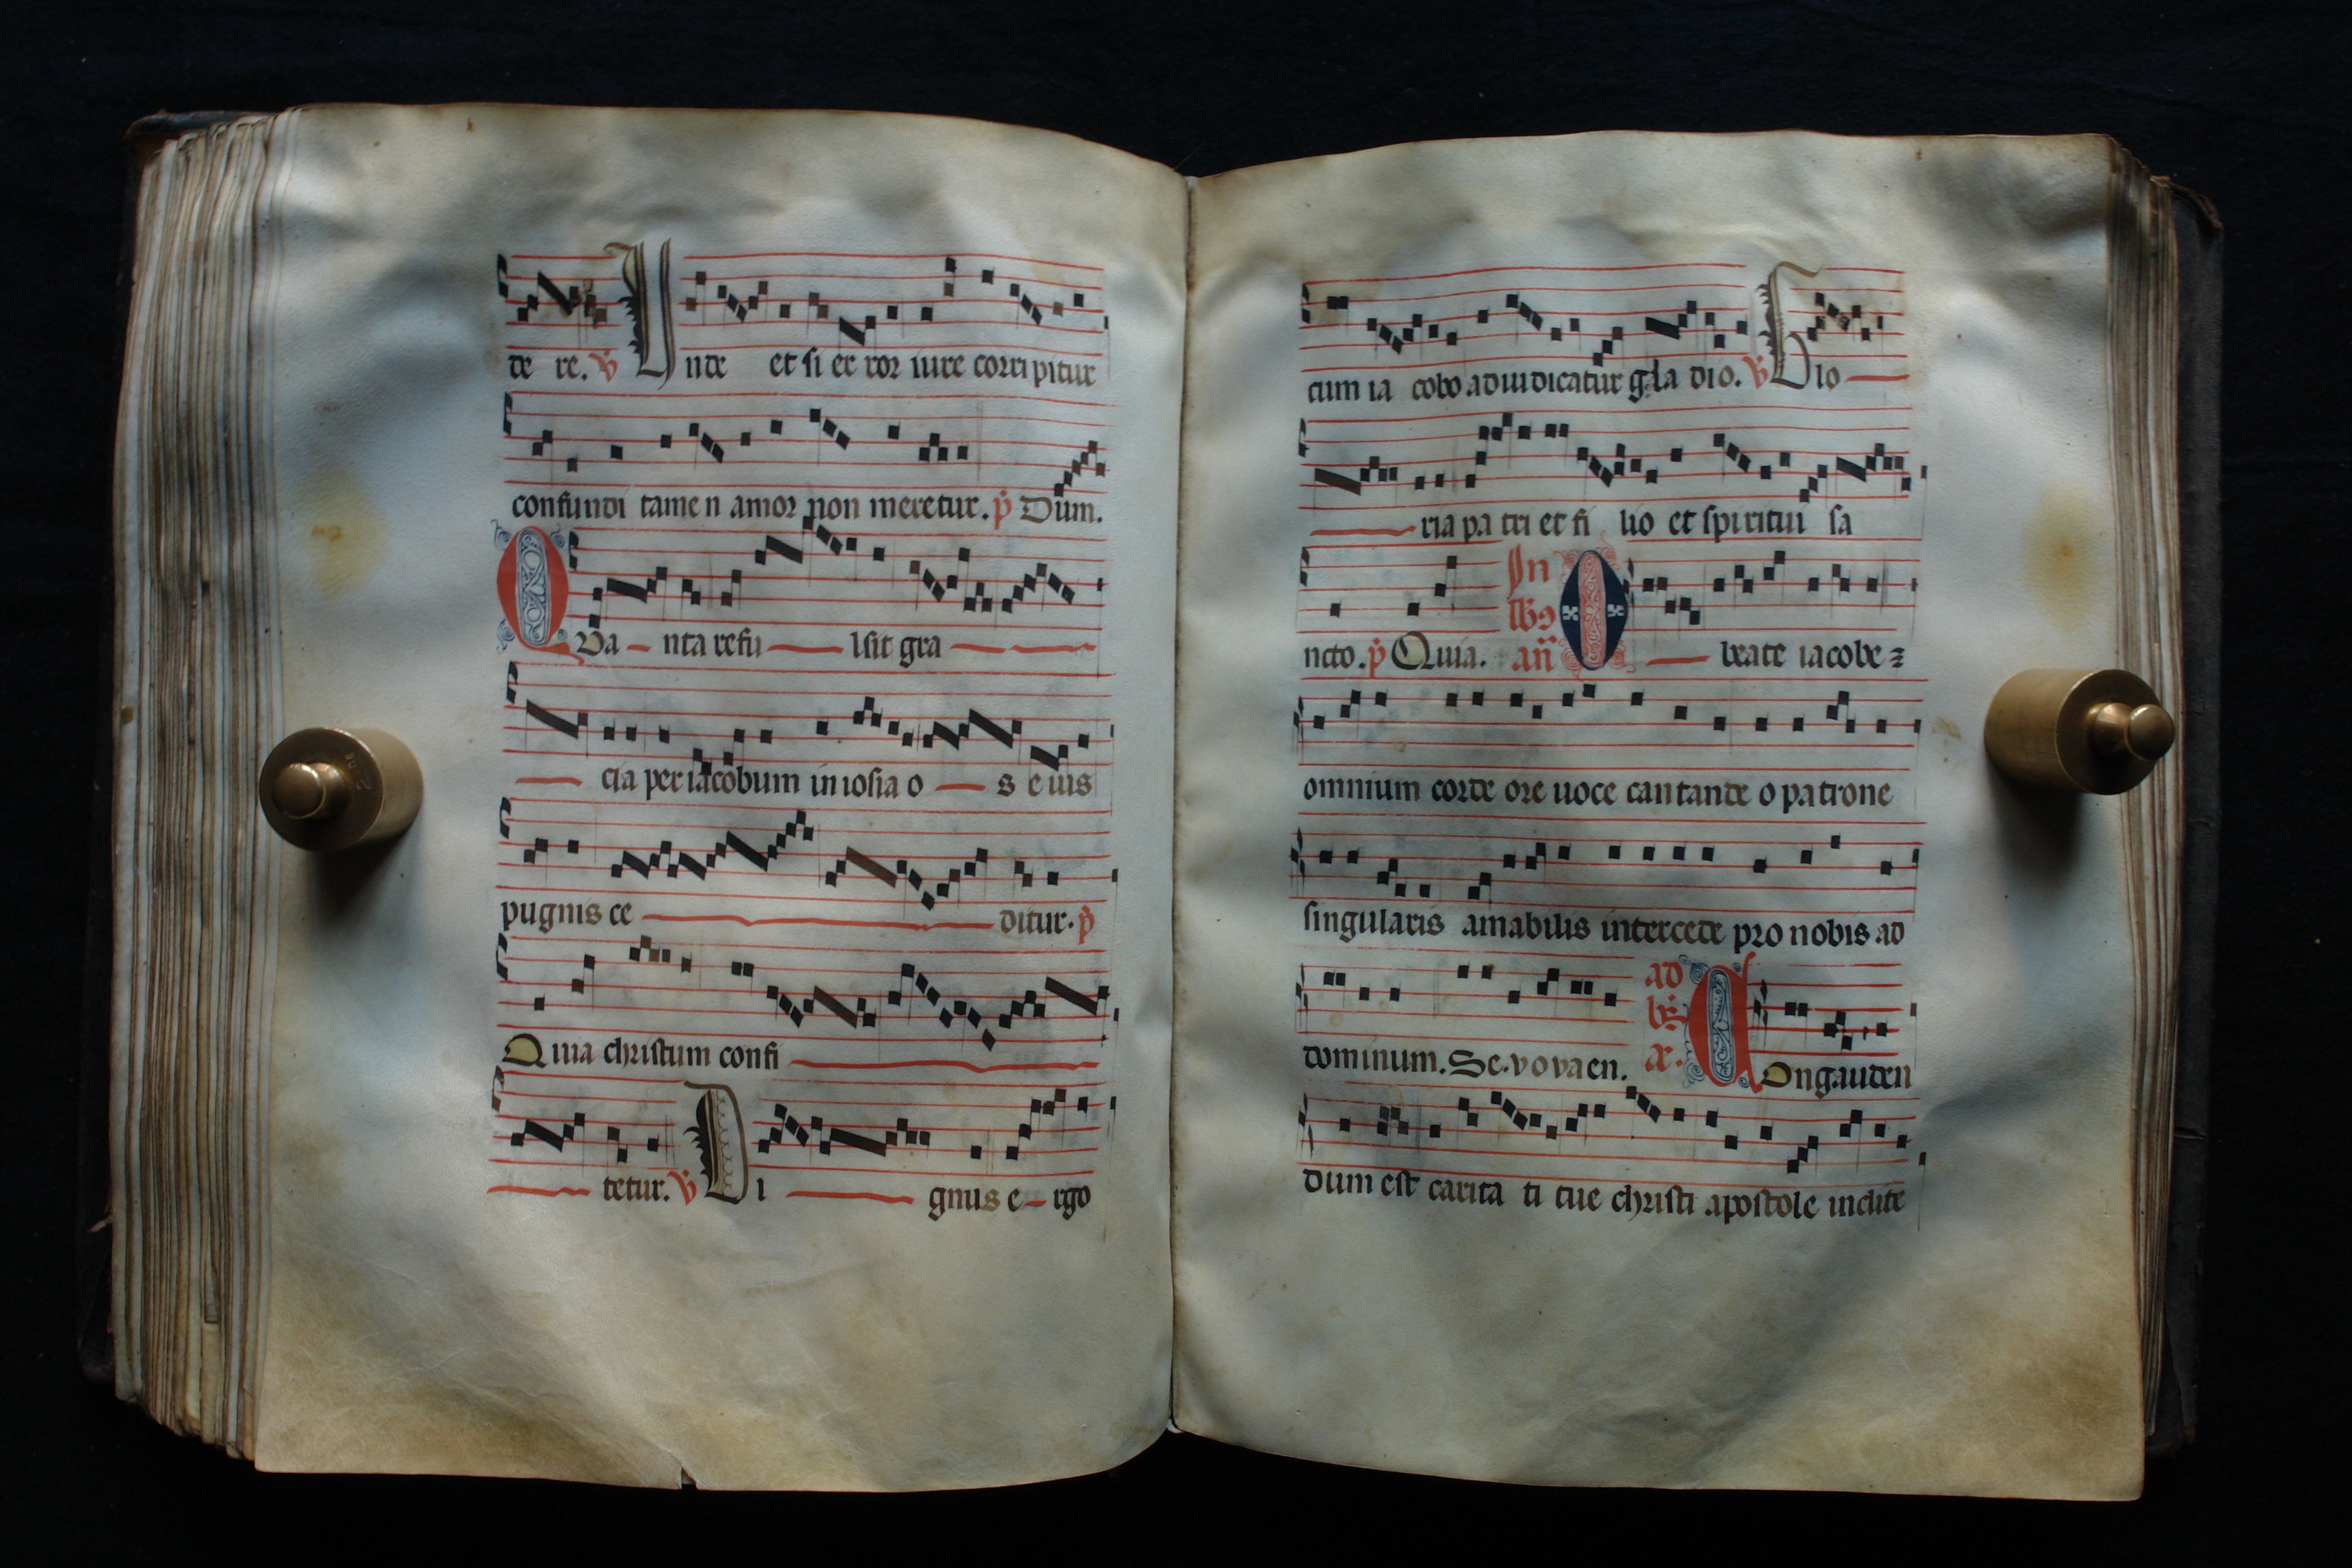 de re. v̇ Unde et si er ror iure corripitur
confundi tamen amor non meretur. ṗ Dum.
Qua nta refu lsit gra
cia per iacobum in iosia o s e uis
pugnis ce ditur. ṗ
Quia christum confi
tetur. v̇ Di gnus e rgo
cum ia cobo adiudicatur gla dio. v̇ Glo
ria pa tri et fi lio et spiritui sa
ncto. ṗ Quia. In lbꝯ an̄ O beate iacobe
omnium corde ore uoce cantande o patrone
singularis amabilis intercede pro nobis ad
dominum. Se vo va en. ad ae. Congauden
dum est carita ti tue christi apostole inclite